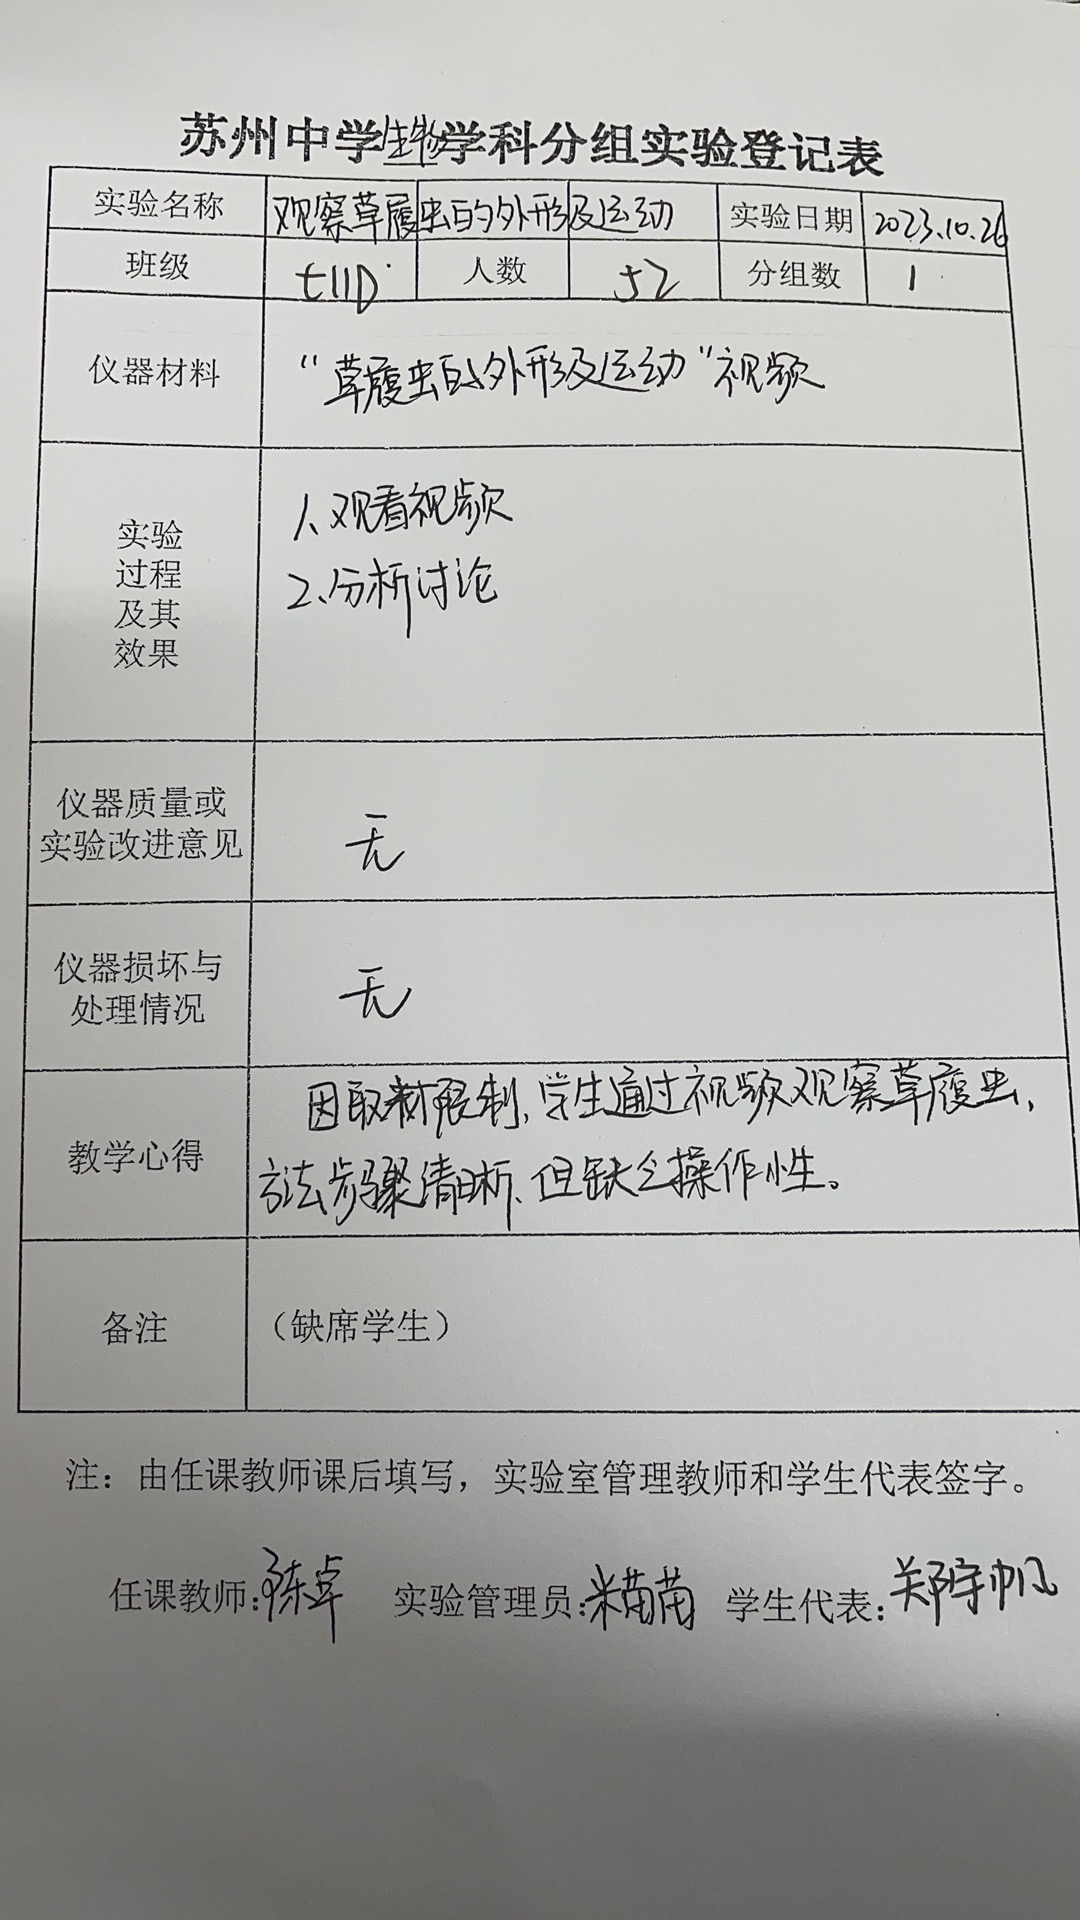 苏州中学生物学科分组实验登记表
实验名称 观察草履虫的外形及运动 实验日期 2023.10.26
班级 七110 人数 52 分组数 1
仪器材料 “草履虫的外形及运动”视频
实验
过程
及其
效果
1、观看视频
2、分析讨论
仪器质量或
实验改进意见
无
仪器损坏与
处理情况
无
教学心得
因取材限制,学生通过视频观察草履虫,
方法步骤清晰、但缺乏操作性。
备注 （缺席学生）
注：由任课教师课后填写，实验室管理教师和学生代表签字。
任课教师:陈卓 实验管理员:米苗苗 学生代表:郑宇帆